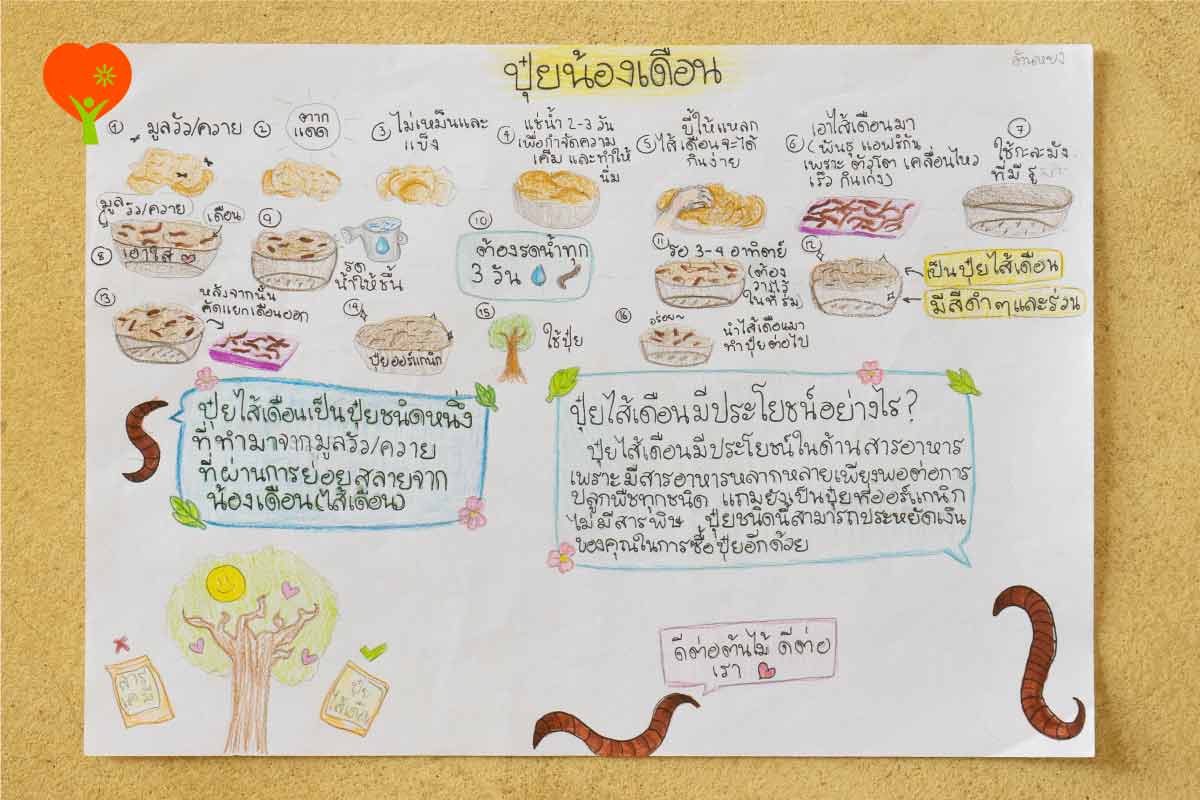 ปุ๋ยน้องเดือน
① มูลวัว/ควาย
② ตาก
แดด
③ ไม่เหม็นและ
แข็ง
④ แช่น้ำ 2-3 วัน
เพื่อกำจัดความ
เค็ม และทำให้
นิ่ม
⑤ ขยี้ให้แหลก
ไส้เดือนจะได้
กินง่าย
⑥ เอาไส้เดือนมา
(พันธุ์ แอฟริกัน
เพราะ ตัวโต เคลื่อนไหว
เร็ว กินเก่ง)
⑦ ใช้กะละมัง
ที่มี รู
⑧ มูลวัว/ควาย
เดือน
เอาใส่
⑨ รด
น้ำให้ชื้น
⑩ ต้องรดน้ำทุก
3 วัน
⑪ รอ 3-4 อาทิตย์
(ต้อง
วางไว้
ในที่ร่ม)
⑫ เป็นปุ๋ยไส้เดือน
มีสีดำๆและร่วน
⑬ หลังจากนั้น
คัดแยกเดือนออก
⑭ ปุ๋ยออร์แกนิก
⑮ ใช้ปุ๋ย
⑯ อร่อย~
นำไส้เดือนมา
ทำปุ๋ยต่อไป
ปุ๋ยไส้เดือนเป็นปุ๋ยชนิดหนึ่ง
ที่ทำมาจากมูลวัว/ควาย
ที่ผ่านการย่อยสลายจาก
น้องเดือน(ไส้เดือน)
ปุ๋ยไส้เดือนมีประโยชน์อย่างไร?
ปุ๋ยไส้เดือนมีประโยชน์ในด้านสารอาหาร
เพราะมีสารอาหารหลากหลายเพียงพอต่อการ
ปลูกพืชทุกชนิด แถมยังเป็นปุ๋ยที่ออร์แกนิก
ไม่มีสารพิษ ปุ๋ยชนิดนี้สามารถประหยัดเงิน
ของคุณในการซื้อปุ๋ยอีกด้วย
สาร
เคมี
ปุ๋ย
ไส้เดือน
ดีต่อต้นไม้ ดีต่อ
เรา